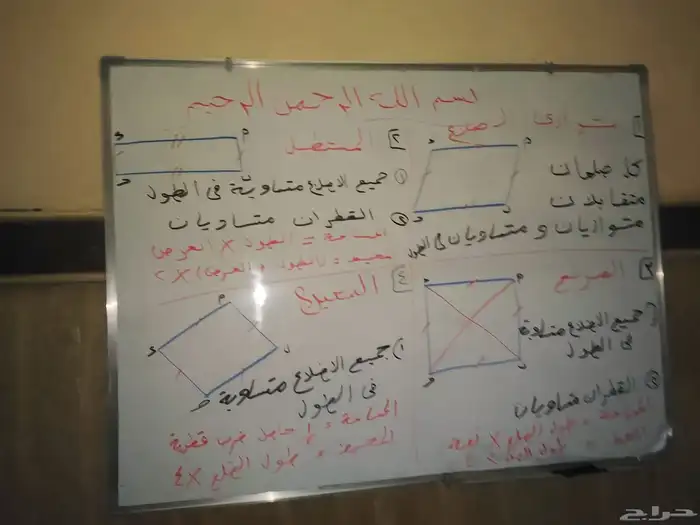 بسم الله الرحمن الرحيم
١] متوازى الاضلاع
كل ضلعان
متقابلان
متوازيان و متساويان فى الطول
٢] المستطيل
① جميع الاضلاع متساوية فى الطول
② القطران متساويان
المساحة = الطول × العرض
المحيط = (الطول + العرض) × ٢
٣] المربع
جميع الاضلاع متساوية
فى الطول
② القطران متساويان
المساحة = طول الضلع × نفسه
طول الضلع × ٤
٤] المعين
① جميع الاضلاع متساوية
فى الطول
المساحة = حاصل ضرب قطرية
المحيط = طول الضلع × ٤
حراج